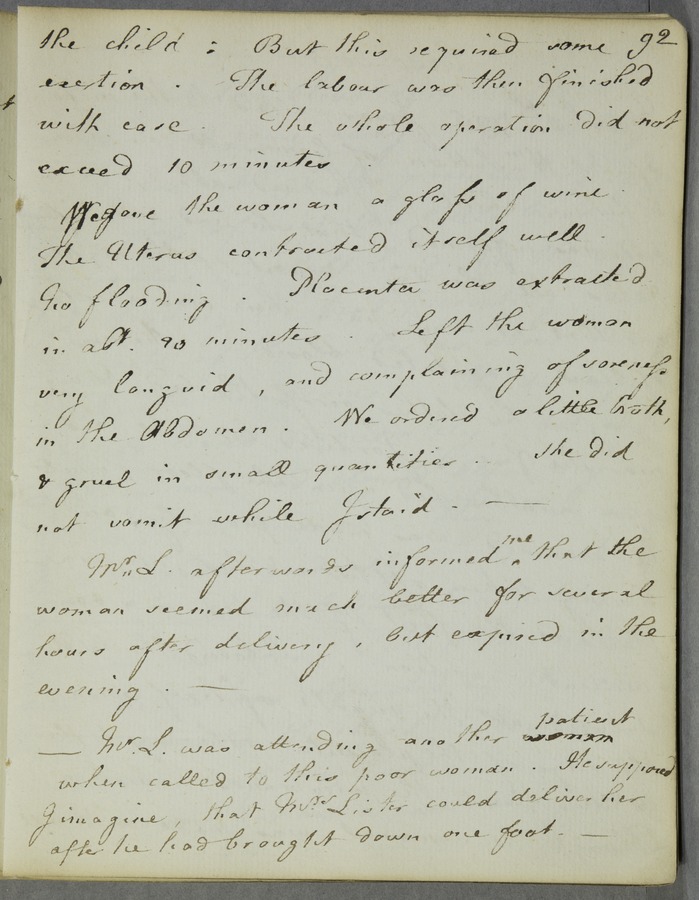 92
the child : But this required some
exertion . The labour was then finished
with ease . The whole operation did not
exceed 10 minutes .
We gave the woman a glass of wine .
The Uterus contracted itself well .
No flooding . Placenta was extracted
in abt. 20 minutes . Left the woman
very languid , and complaining of soreness
in the Abdomen . We ordered a little broth,
& gruel in small quantities . She did
not vomit while I staid . —
Mr. L. afterwards informed me that the
woman seemed much better for several
hours after delivery , but expired in the
evening . —
— Mr. L. was attending another woman patient
when called to this poor woman . He supposed
I imagine , that Mrs Lister could deliver her
after he had brought down one foot . —